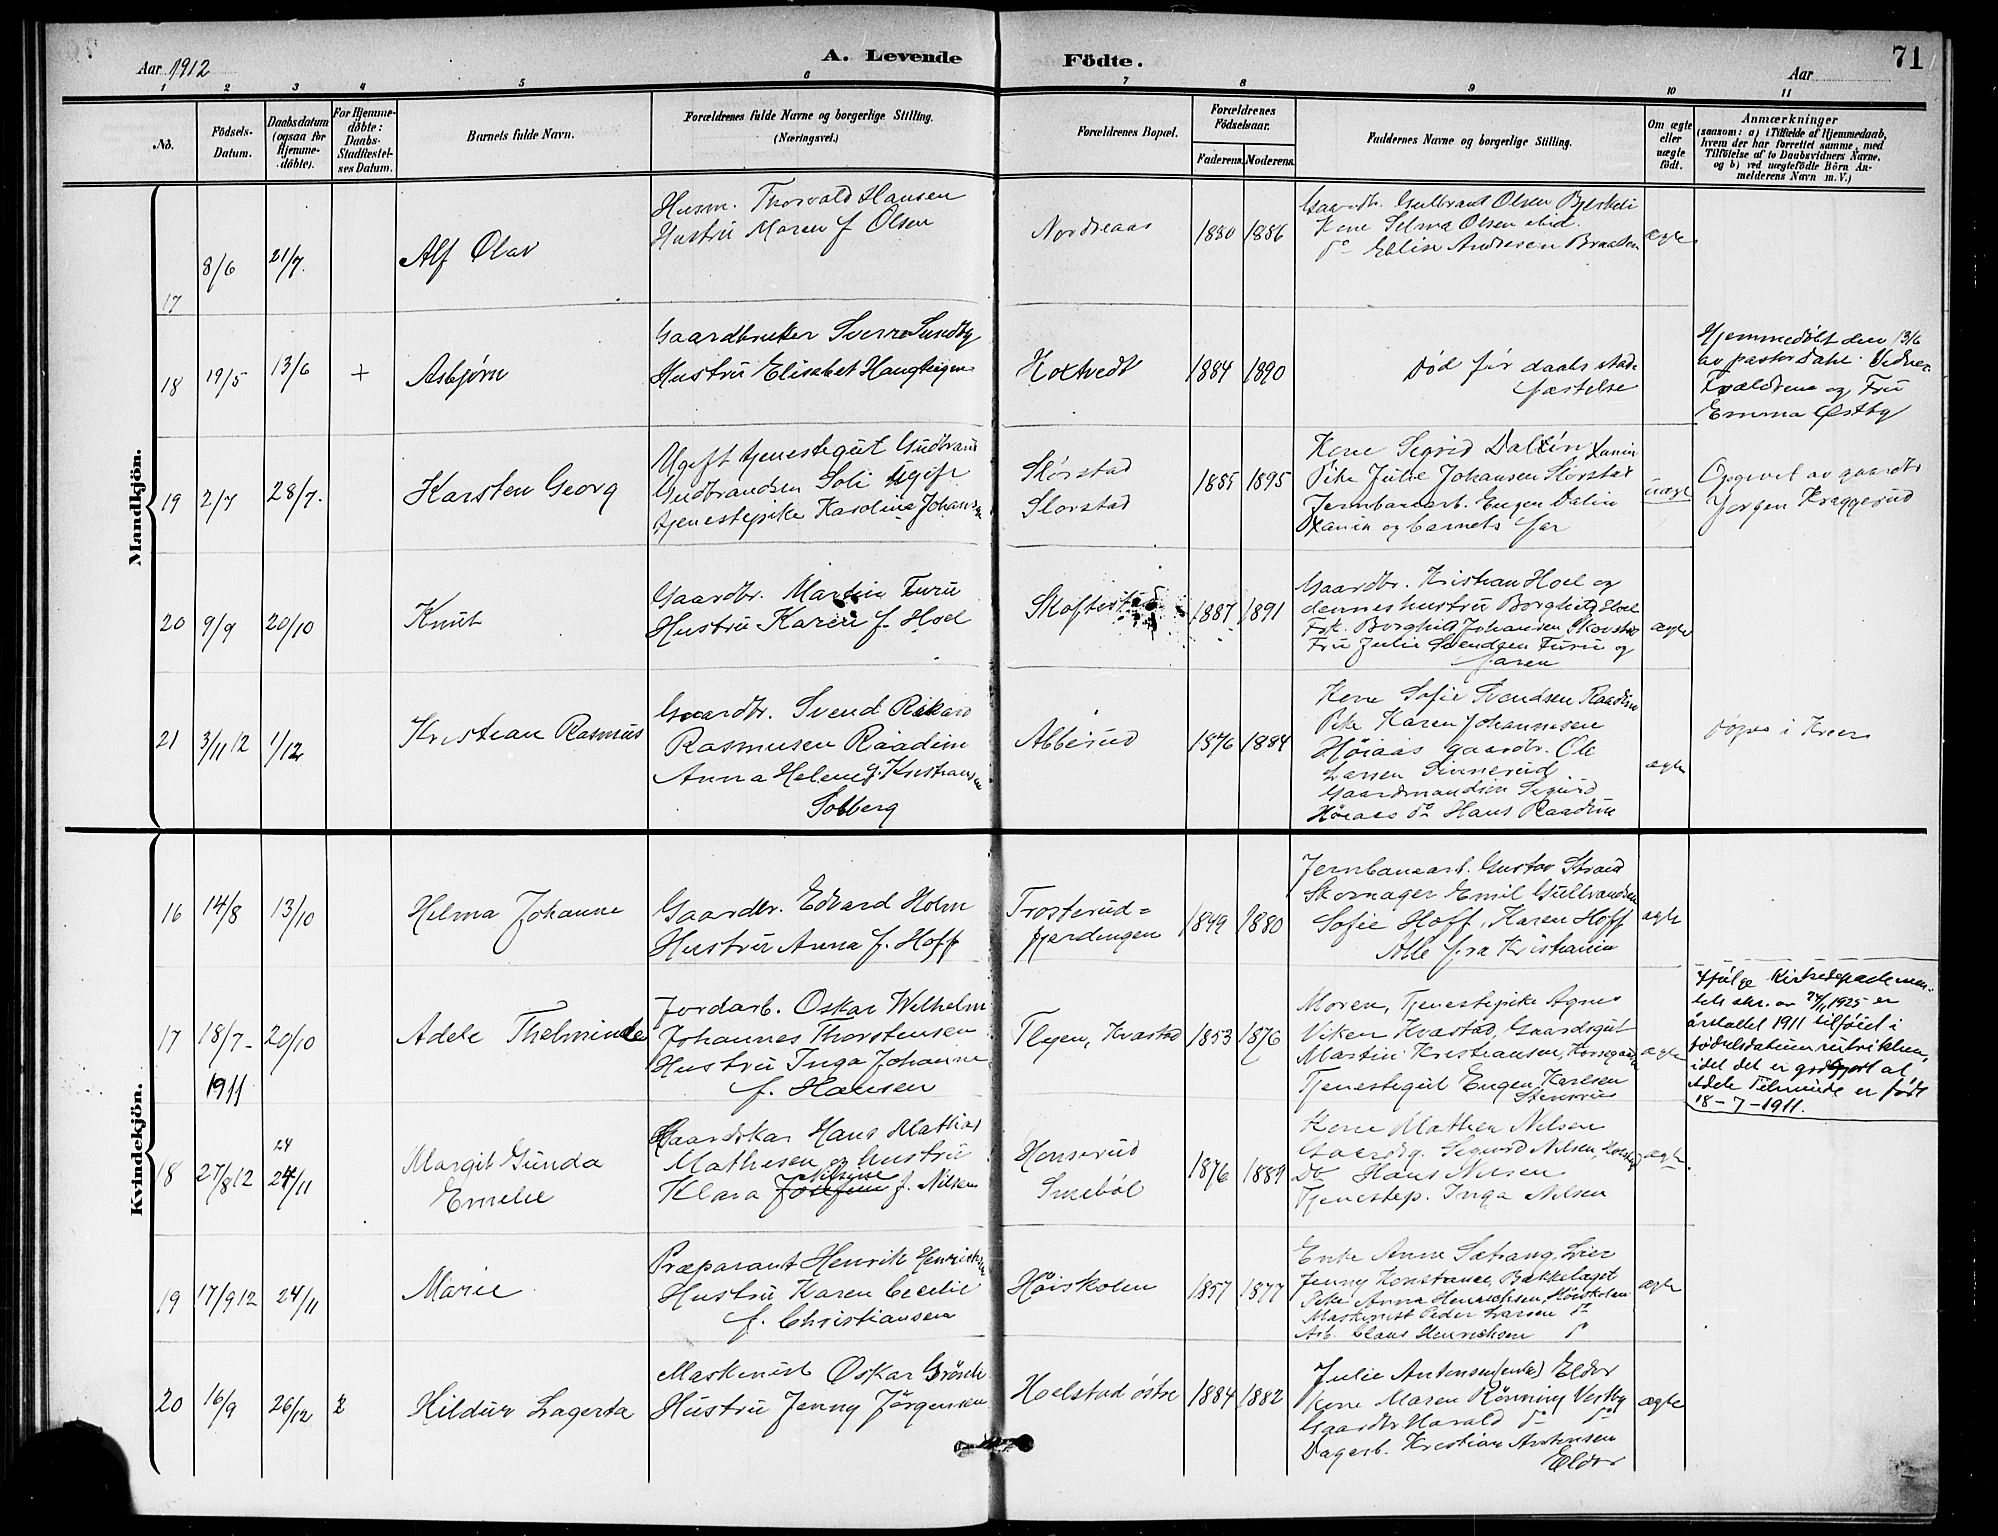 Aar 1912
A. Levende Födte.
Aar
71
1 2 3 4 5 6 7 8 9 10 11
No.
Födsels-Datum.
Daabsdatum (ogsaa for Hjemme-döbte).
For Hjemme-döbte: Daabs-Stadfæstel-ses Datum.
Barnets fulde Navn.
Forældrenes fulde Navne og borgerlige Stilling.
(Næringsvei.)
Forældrenes Bopæl.
Forældrenes Födselsaar.
Faderens. Moderens.
Faddernes Navne og borgerlige Stilling.
Om ægte eller uægte födt.
Anmærkninger
(saasom: a) i Tilfælde af Hjemmedaab,
hvem der har forrettet samme, med
Tilföielse af to Daabsvidners Navne,
og b) ved uægtefödte Börn An-
melderens Navn m. V.)
Mandkjön.
17 8/6 21/7. Alf Olav
Husm. Thorvald Hansen
Hustru Maren f. Olsen
Nordreaas 1880 1886
Gaardbr. Gulbrant Olsen Bjerkeli
Kone Selma Olsen ibid.
do Elise Andresen Braaten
ægte
18 19/5 13/6 + Asbjørn
Gaardbruker Sverre Sundby
Hustru Elisabet Haugteigen
Hoxtvedt 1884 1890
Død før daabs stad-
fæstelse
Hjemmedøbt den 13/6
av pastor Dahl. Vidner
Forældrene og Fru
Emma Østby
19 2/7 28/7. Karsten Georg
Ugift tjenestegut Gudbrand
Gudbrandsen Soli ugift
tjenestepike Karoline Johansen
Storstad
Storstad
1885 1895
Kone Sigrid Dalin
Pike Julie Johansen Storstad
Jernbanearb. Eugen Dalin
og barnets far
uægte
Opgivet av gaardbr
Jørgen Kraggerud
20 9/9 20/10 Knut
Gaardbr. Martin Furu
Hustru Karen f. Hoel
Skofterud 1887 1891
Gaardbr. Kristian Hoel og
dennes hustru Borghild Hoel
Frk. Borghild Johansen, Skovstad
Fru Julie Svendsen Furu og
faren
ægte
21 3/11 12 1/12 Kristian Rasmus
Gaardbr. Svend Rikard
Rasmusen Raadim
Anna Helene f. Kristiansen
Solberg
Abberud 1876 1884
Kone Sofie Svendsen Raadim
Pike Karen Johannesen
Høiaas gaardbr. Ole
Larsen Sinnerud
Gaardmandsøn Sigurd
Høiaas do Hans Raadim
ægte
Døpt i Kroer
Kvindekjön.
16 14/8 13/10 Helma Johanne
Gaardbr. Edvard Holm
Hustru Anna f. Hoff
Trosterud=
fjerdingen
1849 1880
Jernbanearb. Gustav Strand
Skomager Emil Gulbrandsen
Sofie Hoff, Karen Hoff
Alle fra Kristiania
ægte
17 18/7- 1911 20/10 Adele Thelminde
Jordarb. Oskar Wilhelm
Johannes Thorstensen
Hustru Inga Johanne
f. Hansen
Flyen, Kvastad 1853 1876
Moren, Tjenestepike Agnes
Viken Kvastad, Gaardsgut
Martin Kristiansen, Korsegaarden
Tjenestegut Eugen Karlsen
Stensrud
ægte
Ifølge Kirkedepartemen-
tets skr. av 24/1 1925 er
årstallet 1911 tilføiet i
fødselsdatumrubrikken,
idet det er godtgjort at
Adele Telminde er født
18-7-1911.
18 27/8 12 24 24/11 Margit Gunda
Emelie
Gaardskar Hans Mathias
Mathisen og hustru
Nilsine
Klara Josefine f. Nilsen
Honserud
Smebøl
1876 1889
Kone Mathea Nilsen
Gaardbg. Sigurd Nilsen,
Do Hans Nilsen
Tjenestep. Inga Nilsen
ægte
19 17/9 12 24/11 Marie
Præparant Henrik Henrichsen
Hustru Karen Cecilie
f. Christiansen
Høiskolen 1857 1877
Enke Anne Sætrang, Lier
Jenny Konstance, Bækkelaget
Pike Anna Henrichsen, Høiskolen
Maskinist Peder Larsen do
Arb. Claus Henrichsen do
ægte
20 16/9 26/12 2 Hildur Lagerta
Maskinist Oskar Grönli
Hustru Jenny Jørgensen
Holstad østre 1884 1882
Julie Antonsen (enke) Eldor
Kone Maren Rønning Vestby
Gaardbr Harald do do
Dagarb. Kristian Antonsen
Eldor
ægte